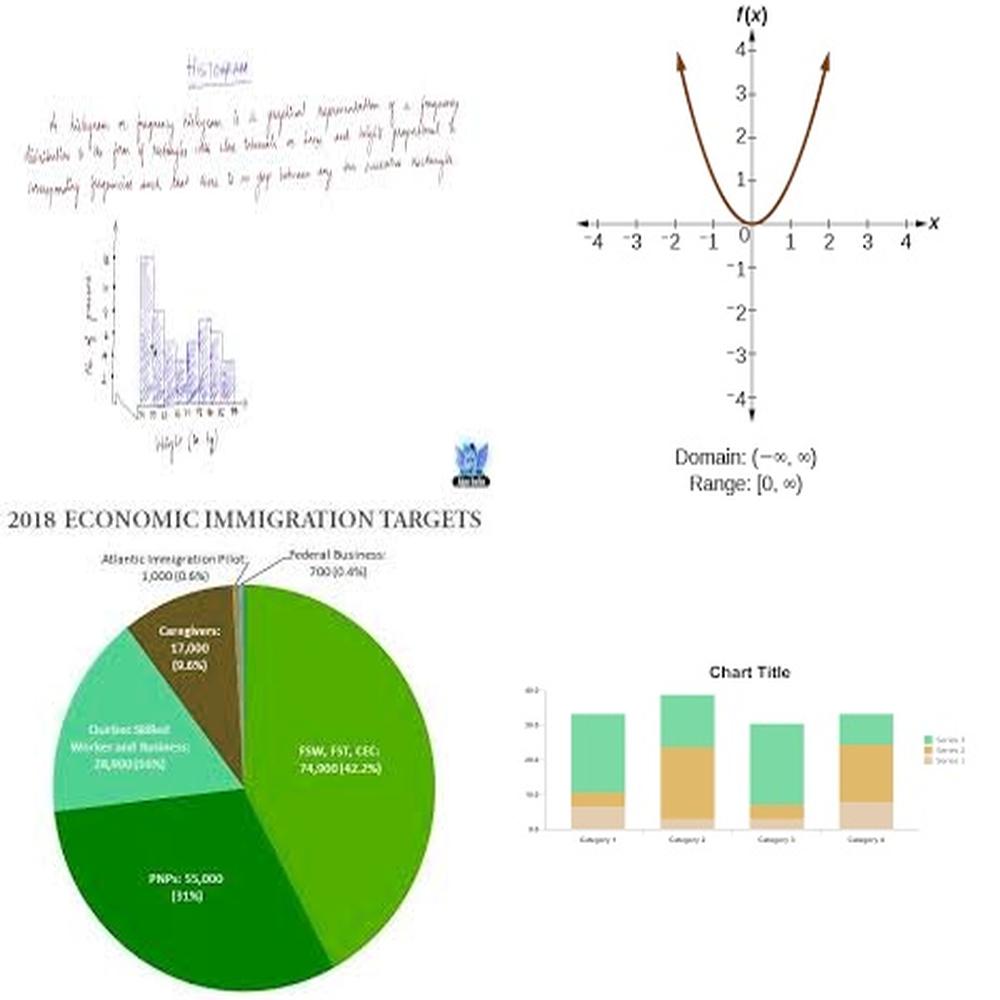 HISTOGRAM
A histogram or frequency histogram is a graphical representation of a frequency
distribution in the form of rectangles with class intervals as bases and height proportional to
corresponding frequencies such that there is no gap between any two successive rectangles
No. of persons
Weight (in kg)
f(x)
4
3
2
1
-4 -3 -2 -1 0 1 2 3 4 x
-1
-2
-3
-4
Domain: (−∞, ∞)
Range: [0, ∞)
2018 ECONOMIC IMMIGRATION TARGETS
Atlantic Immigration Pilot:
1,000 (0.6%)
Federal Business:
700 (0.4%)
Caregivers:
17,000
(9.6%)
Quebec Skilled
Worker and Business:
28,900 (16%)
FSW, FST, CEC:
74,900 (42.2%)
PNPs: 55,000
(31%)
Chart Title
40.0
30.0
20.0
10.0
0.0
Category 1 Category 2 Category 3 Category 4
Series 3
Series 2
Series 1